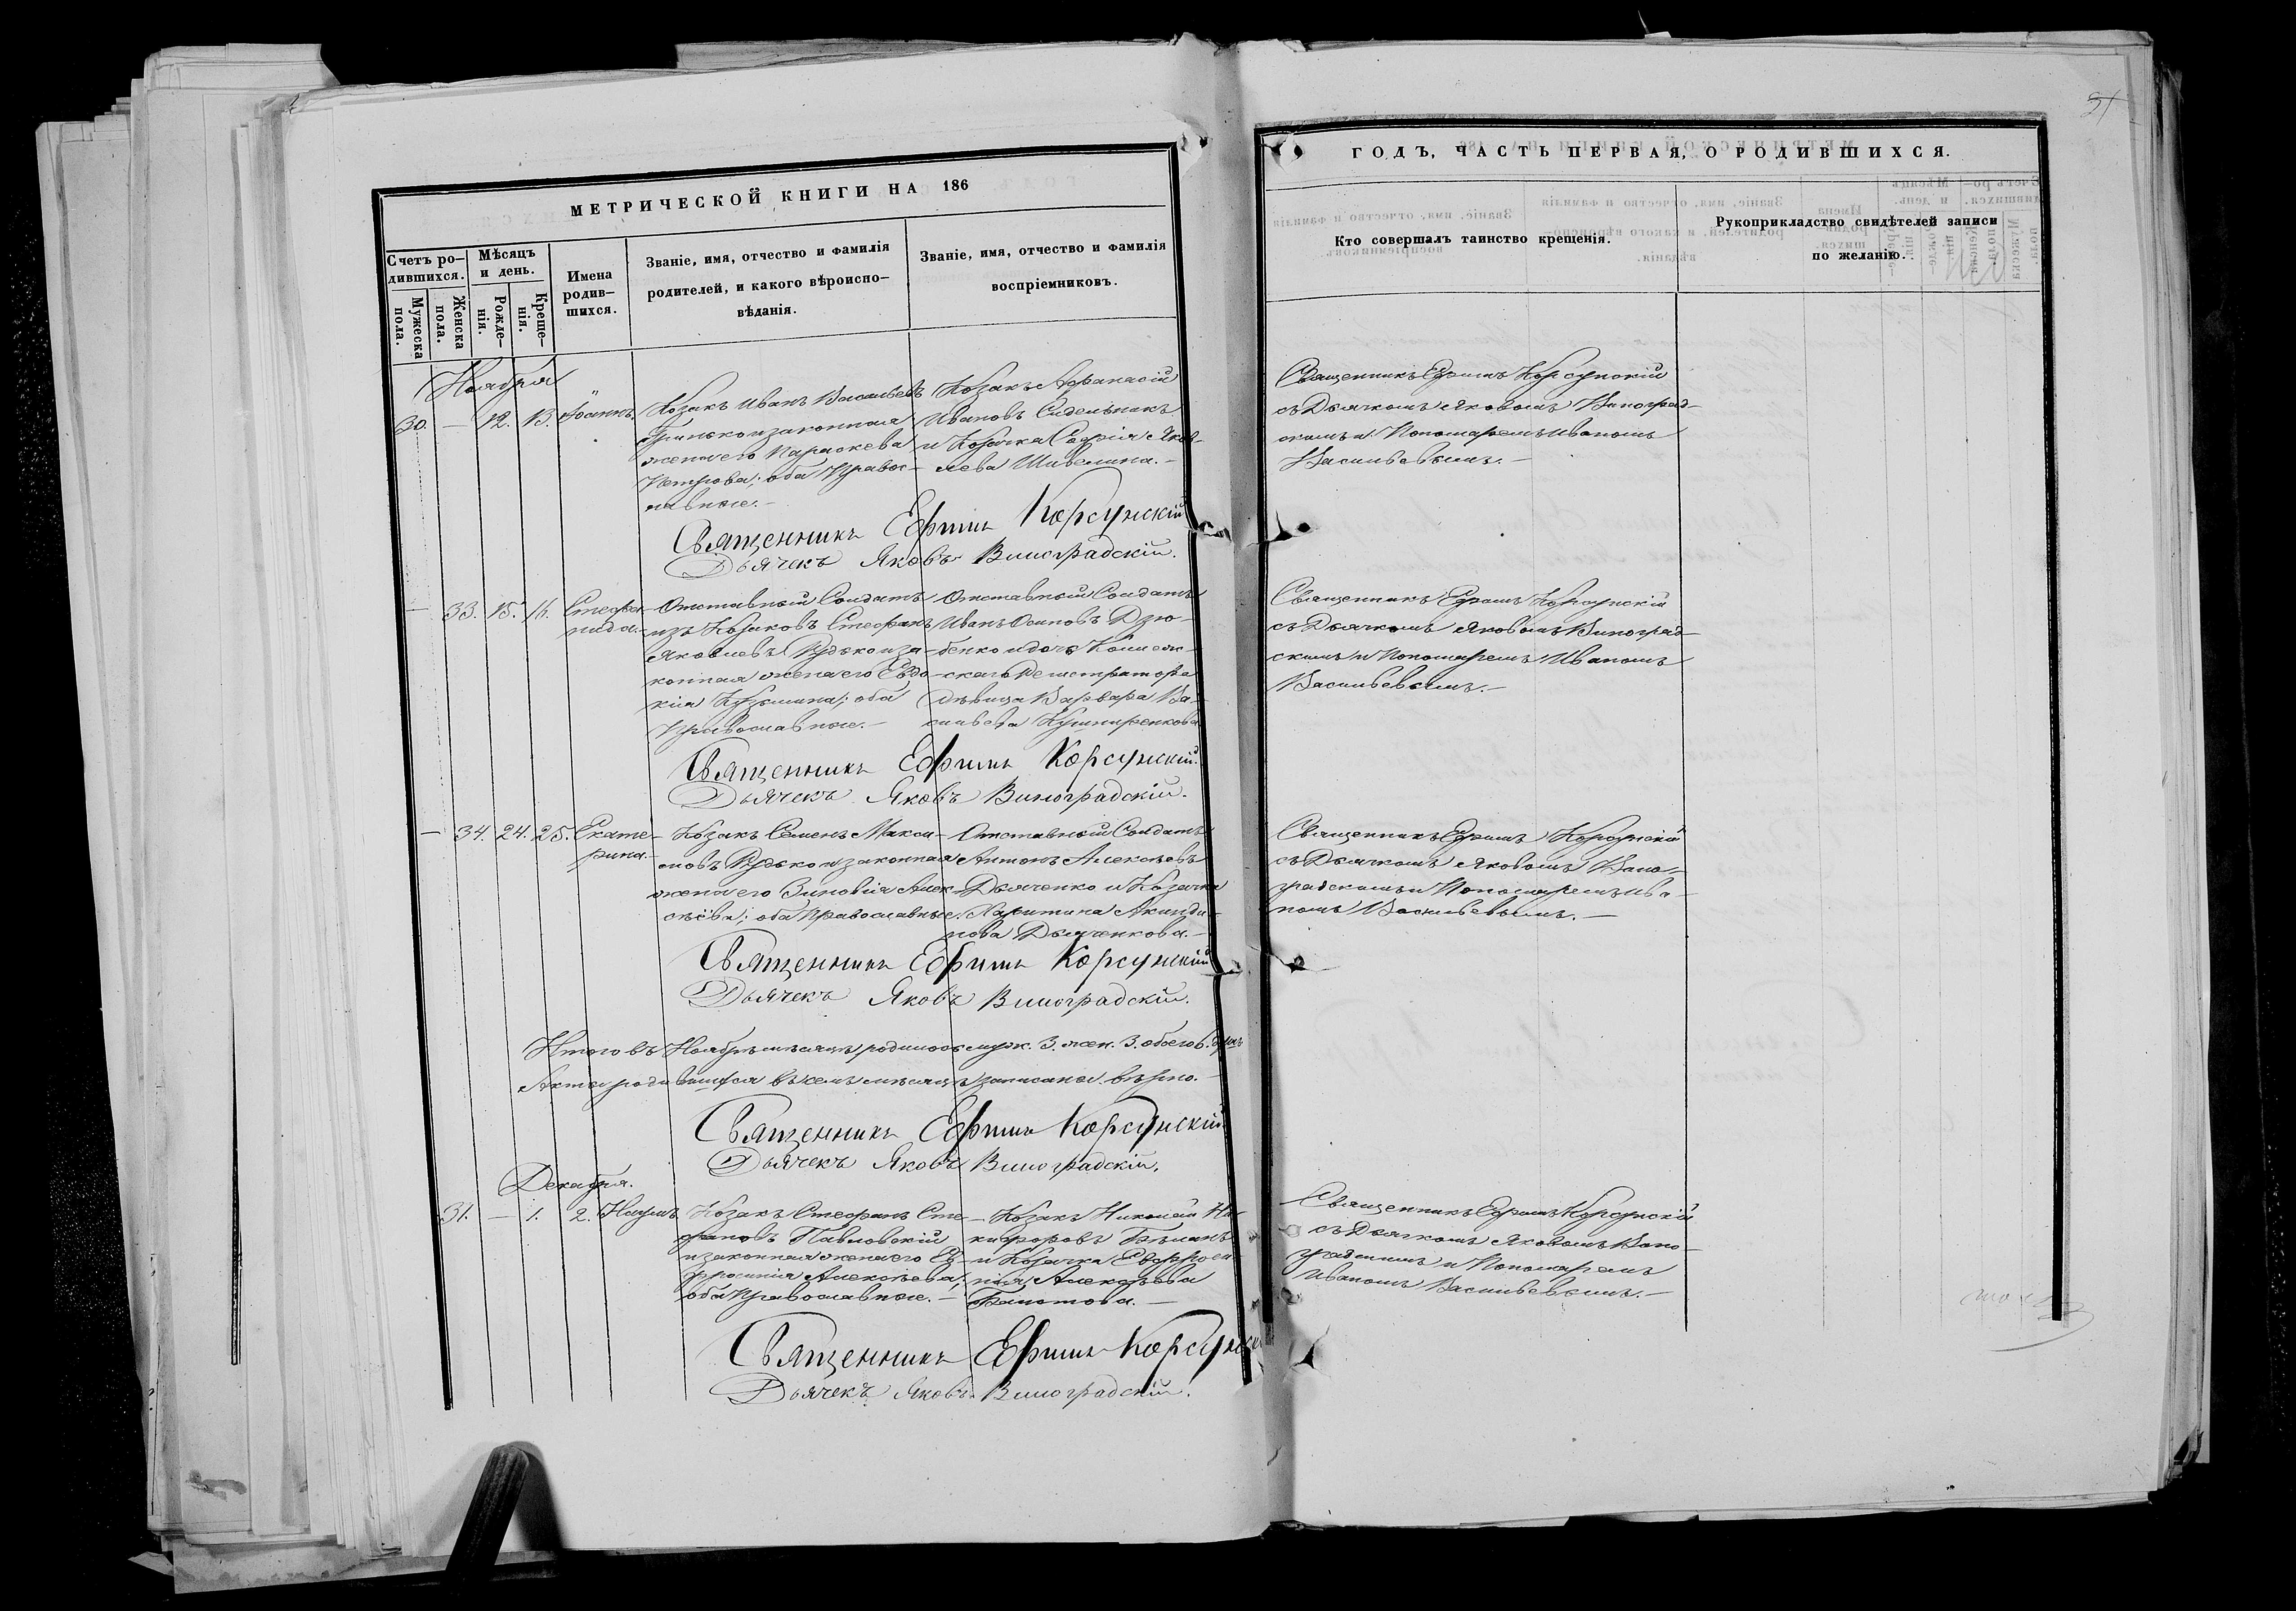 МЕТРИЧЕСКОЙ КНИГИ НА 186
Счетъ ро-
дившихся.
Мужеска
пола.
Женска
пола.
Мѣсяцъ
и день.
Рожде-
нія.
Креще-
нія.
Имена
родив-
шихся.
Званіе, имя, отчество и фамилія
родителей, и какого вѣроиспо-
вѣданія.
Званіе, имя, отчество и фамилія
воспріемниковъ.
Ноября
30. — 12. 13. Іоаннъ.
Козакъ Иванъ Васильевъ
Гринько и законная
жена его Параскева
Петрова; оба Правос-
лавные.—
Козакъ Афанасій
Ивановъ Сидельникъ
и Козачка Софія Яков-
лева Шивелина.—
Священникъ Ефимъ Корсунскій
Дьячекъ Яковъ Виноградскій.
— 33. 15. 16. Стефа-
нида.—
Отставный Солдатъ
изъ Козаковъ Стефанъ
Яковлевъ Рудько и за-
конная жена его Евдо-
кія Кузьмина; оба
Православные.—
Отставный Солдатъ
Иванъ Осиповъ Дзю-
бенко и дочь Коллеж-
скаго Регистратора
дѣвица Варвара Ва-
сильева Кушниренкова
Священникъ Ефимъ Корсунскій.
Дьячекъ Яковъ Виноградскій.
— 34. 24. 25. Екате-
рина.—
Козакъ Семенъ Макси-
мовъ Рудько и законная
жена его Зиновія Алек-
сѣева; оба Православные.
Отставный Солдатъ
Антонъ Алексѣевъ
Дьяченко и Козачка
Харитина Акинди-
нова Дьяченкова.—
Священникъ Ефимъ Корсунскій
Дьячекъ Яковъ Виноградскій.
Итого въ Ноябрѣ мѣсяцѣ родилось муж. 3. жен. 3. обоего 6. душъ
Акты родившихся въ семъ мѣсяцѣ записаны вѣрно.—
Священникъ Ефимъ Корсунскій
Дьячекъ Яковъ Виноградскій.
Декабря.
31. — 1. 2. Наумъ
Козакъ Стефанъ Сте-
фановъ Павловскій
и законная жена его Ев-
фросинія Алексѣева;
оба Православные.—
Козакъ Николай Ни-
кифоровъ
и Козачка Евфроси-
нія Алексѣева
Священникъ Ефимъ Корсунскі
Дьячекъ Яковъ Виноградскій.
ГОДЪ, ЧАСТЬ ПЕРВАЯ, О РОДИВШИХСЯ.
Кто совершалъ таинство крещенія.
Рукоприкладство свидѣтелей записи
по желанію.
Священникъ Ефимъ Корсунскій
съ Дьячкомъ Яковомъ Виноград-
скимъ и Пономаремъ Иваномъ
Васильевымъ.—
Священникъ Ефимъ Корсунскій
съ Дьячкомъ Яковомъ Виноград-
скимъ и Пономаремъ Иваномъ
Васильевымъ.—
Священникъ Ефимъ Корсунскій
съ Дьячкомъ Яковомъ Вино-
градскимъ и Пономаремъ Ива-
номъ Васильевымъ.—
Священникъ Ефимъ Корсунскій
съ Дьячкомъ Яковомъ Вино-
градскимъ и Пономаремъ
Иваномъ Васильевымъ.—